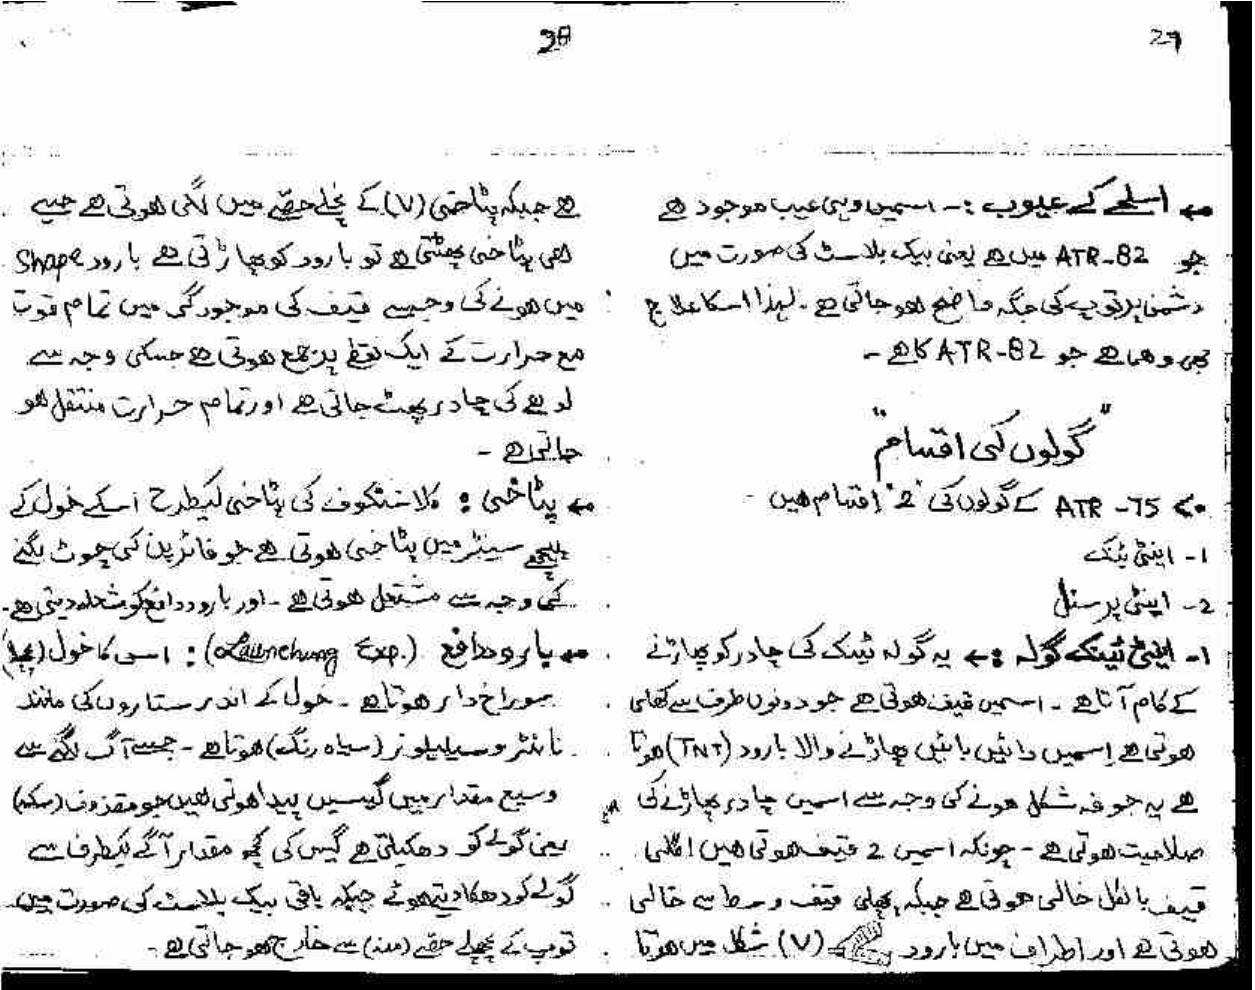 29
← اسلحے کے عیوب :- اسمیں وہی عیب موجود ہے
جو ATR-82 میں ہے یعنی بیک بلاسٹ کی صورت میں
دشمن پر توپ کی جگہ واضح ہو جاتی ہے۔ لہذا اسکا علاج
بھی وہی ہے جو ATR-82 کا ہے -
"گولوں کی اقسام"
ATR-75 کے گولوں کی "2" اقسام ہیں -
1- اینٹی ٹینک
2- اینٹی پرسنل
1- اینٹی ٹینک گولہ :← یہ گولہ ٹینک کی چادر کو پھاڑنے
کے کام آتا ہے - اسمیں قیف ہوتی ہے جو دونوں طرف سے کھلی
ہوتی ہے اسمیں دائیں بائیں پھاڑنے والا بارود (TNT) ہوتا
ہے یہ جوفہ شکل ہونے کی وجہ سے اسمیں چادر پھاڑنے کی
صلاحیت ہوتی ہے - چونکہ اسمیں 2 قیف ہوتی ہیں اگلی
قیف بالکل خالی ہوتی ہے جبکہ پچھلی قیف وسط سے خالی
ہوتی ہے اور اطراف میں بارود (V) شکل میں ہوتا
30
ہے جبکہ پٹاخی (V) کے نچلے حصے میں لگی ہوتی ہے جیسے
ہی پٹاخی پھٹتی ہے تو بارود کو پھاڑتی ہے بارود Shape
میں ہونے کی وجہ سے قیف کی موجودگی میں تمام قوت
مع حرارت کے ایک نقطے پر جمع ہوتی ہے جسکی وجہ سے
لوہے کی چادر پھٹ جاتی ہے اور تمام حرارت منتقل ہو
جاتی ہے -
← پٹاخی : کلاشنکوف کی پٹاخی کیطرح اسکے خول کے
پیچھے سینٹر میں پٹاخی ہوتی ہے جو فائر پن کی چوٹ لگنے
کی وجہ سے مشتعل ہوتی ہے - اور بارود دافع کو شعلہ دیتی ہے -
← بارود دافع (Launching Exp.) : اسی کا خول
سوراخ دار ہوتا ہے - خول کے اندر ستاروں کی مانند
نائٹروسیلیلوز (سیاہ رنگ) ہوتا ہے - جسے آگ لگنے سے
وسیع مقدار میں گیسیں پیدا ہوتی ہیں جو مقذوف (سکہ)
یعنی گولے کو دھکیلتی ہے گیس کی کچھ مقدار آگے کیطرف سے
گولے کو دھکا دیتے ہوئے جبکہ باقی بیک بلاسٹ کی صورت میں
توپ کے پچھلے حصے (منہ) سے خارج ہو جاتی ہے -